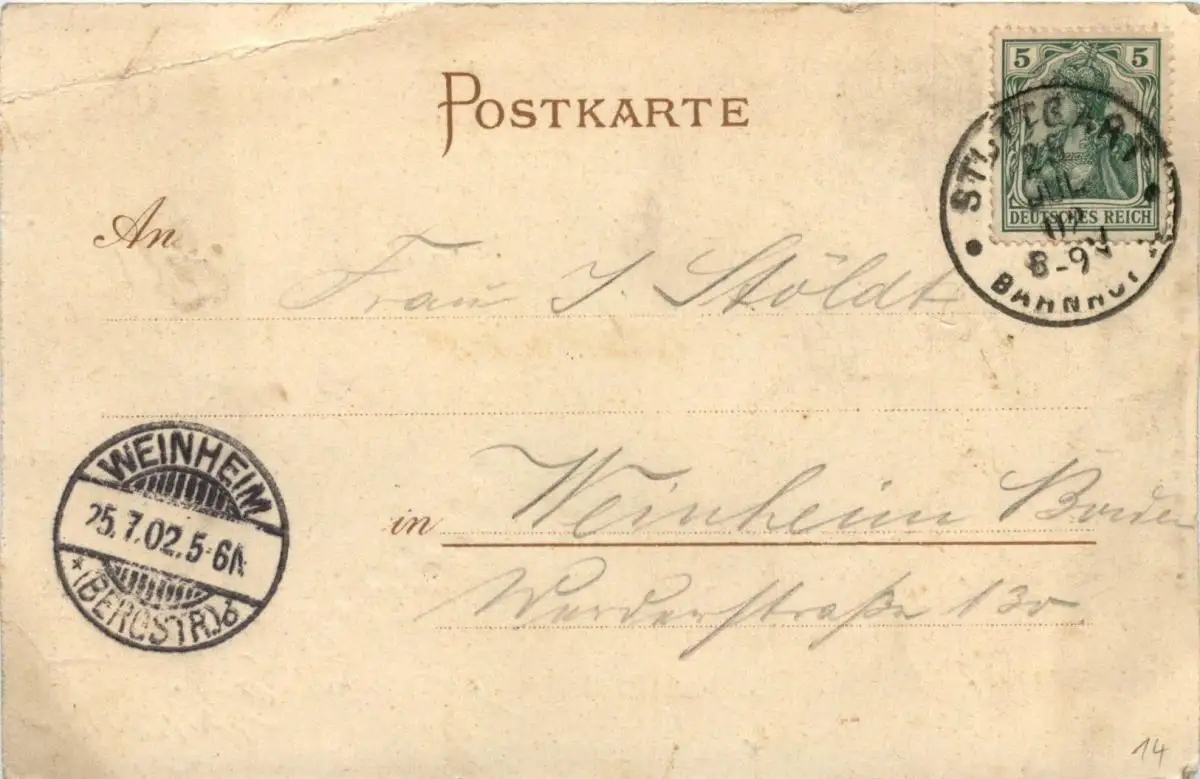 POSTKARTE
5 5
DEUTSCHES REICH
STUTTGART
25
JUL
02
8-9V
BAHNHOF
An Frau J. Stöldt
WEINHEIM
25.7.02.5-6N
*(BERGSTR.)d
in Weinheim Baden
Werderstraße
14